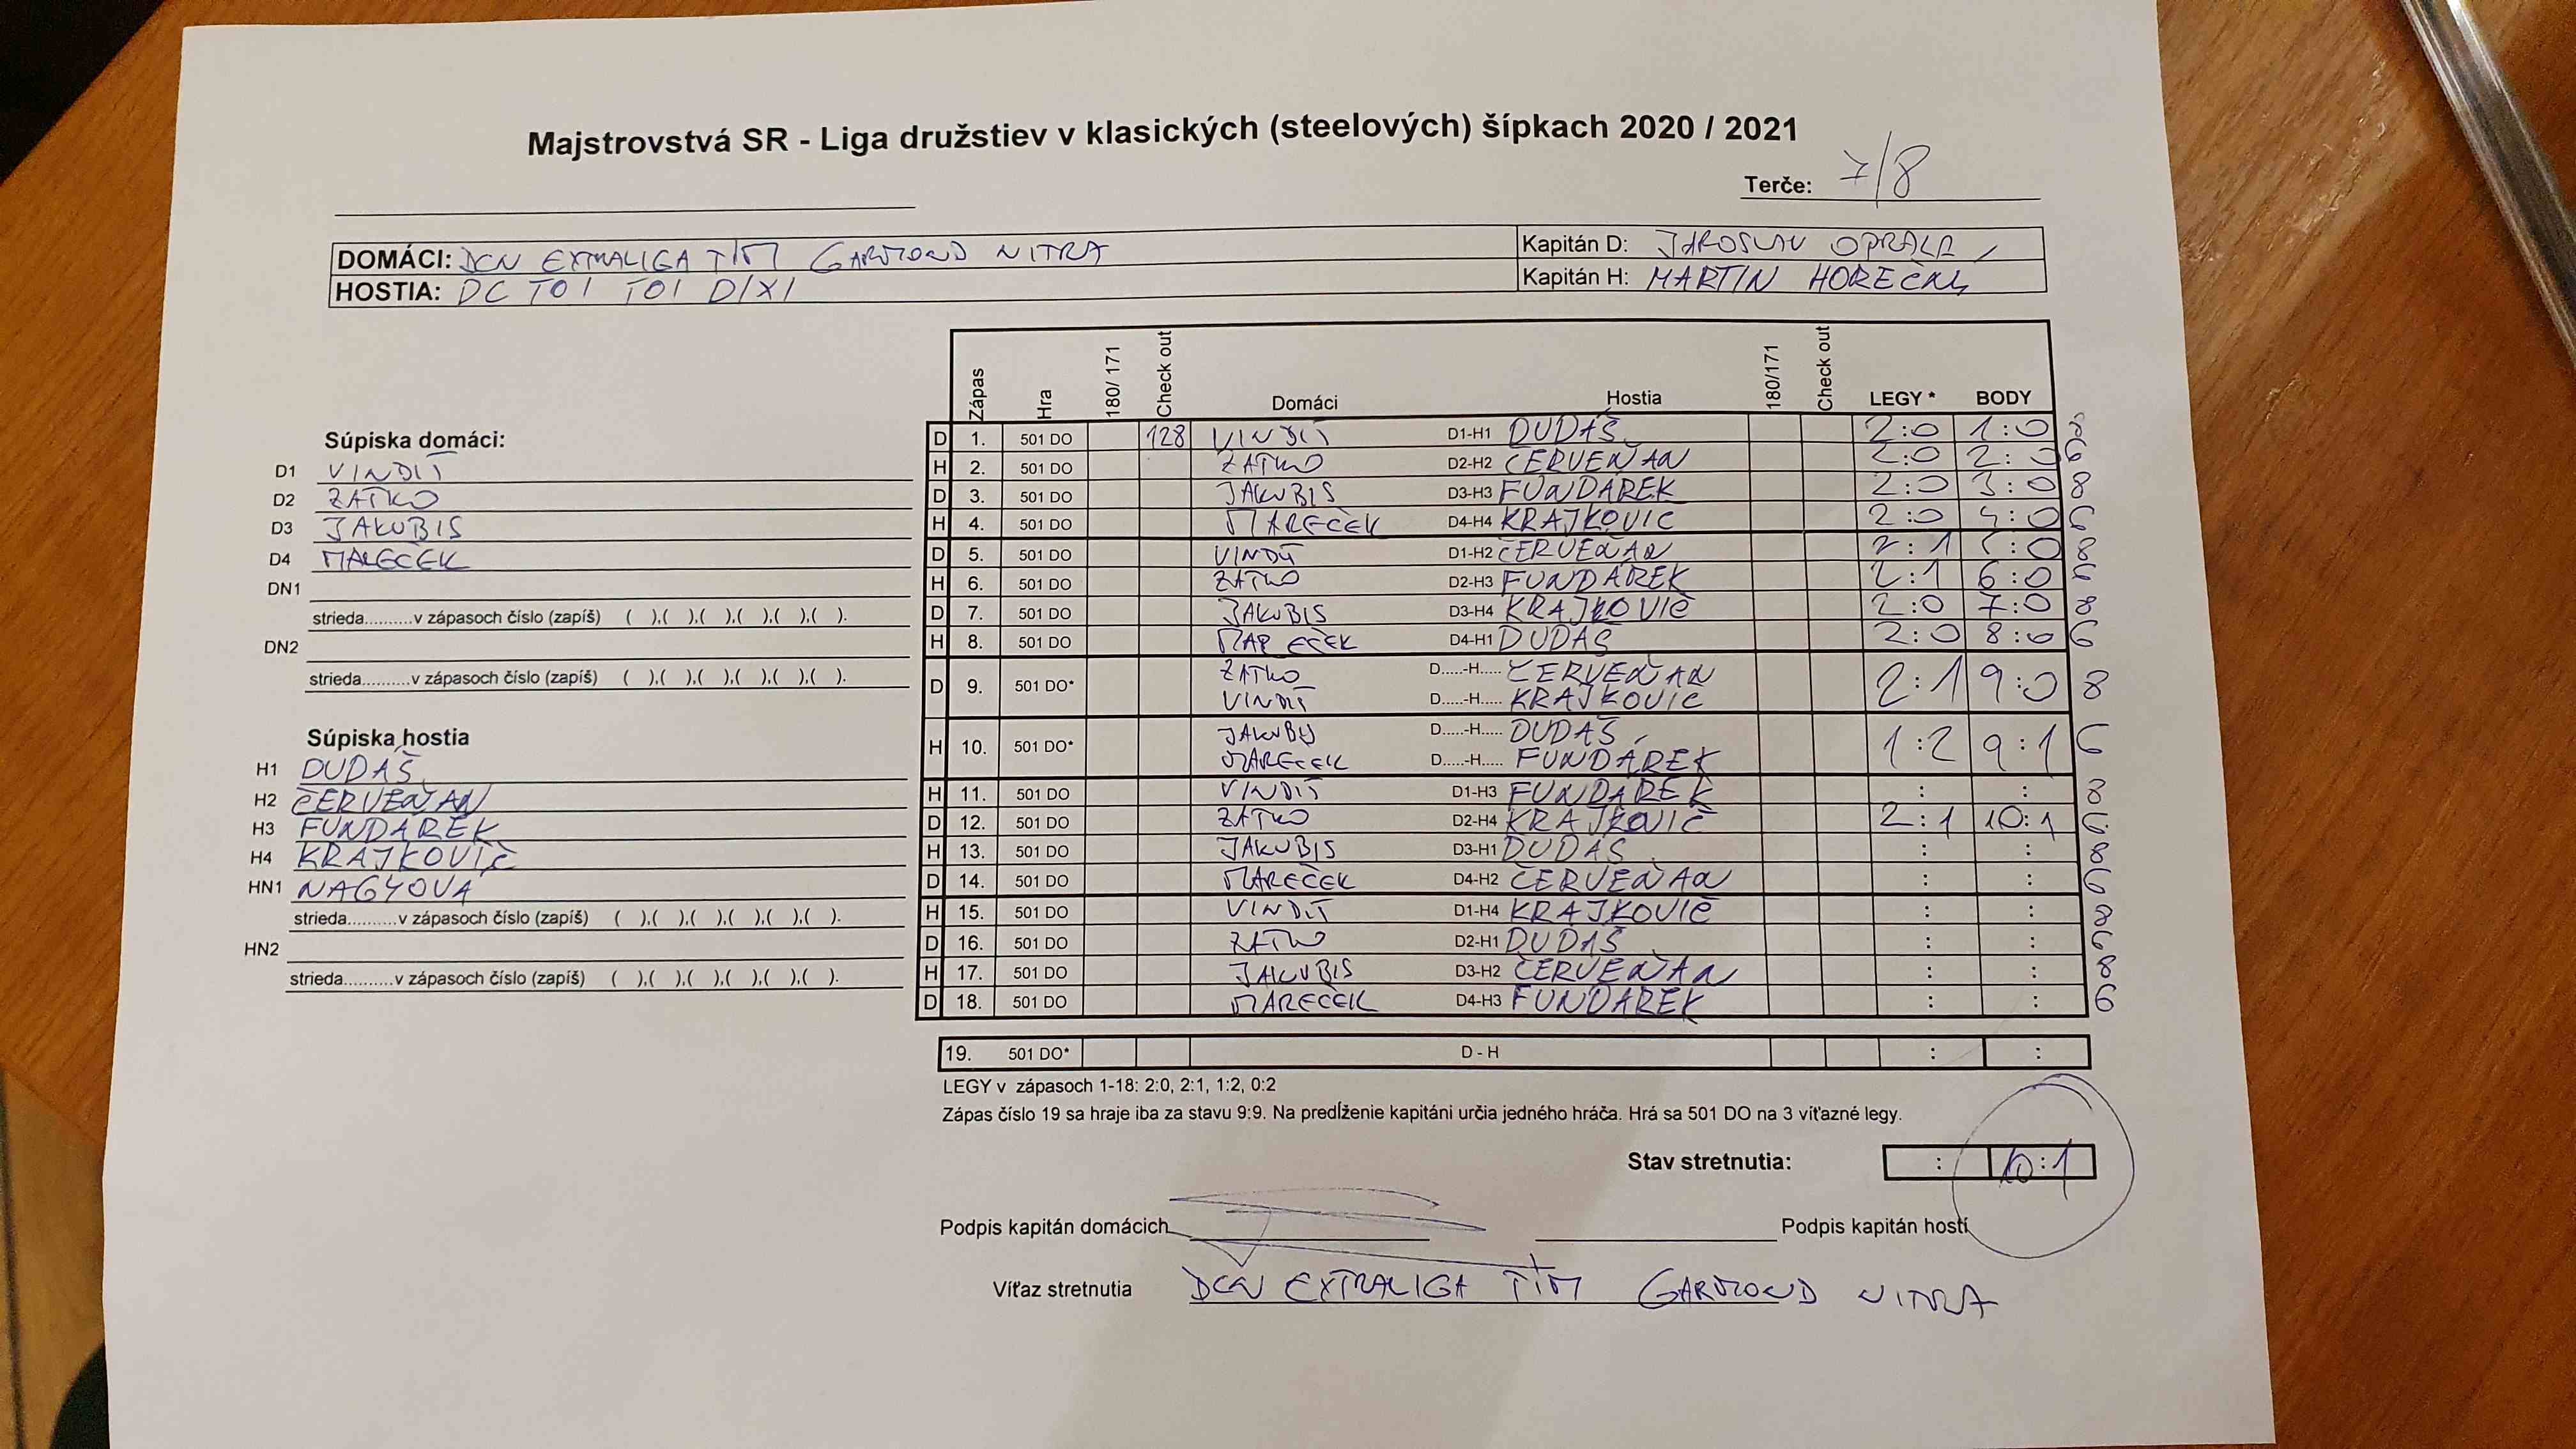 Majstrovstvá SR - Liga družstiev v klasických (steelových) šípkach 2020 / 2021
Terče: 7/8
DOMÁCI: DCN EXTRALIGA TÍM GARMOND NITRA Kapitán D: JAROSLAV OPRALA
HOSTIA: DC TOI TOI DIXI Kapitán H: MARTIN HOREČNÝ
Zápas Hra 180/ 171 Check out Domáci Hostia 180/171 Check out LEGY * BODY
Súpiska domáci:
D1 VINDIŠ
D2 ZATKO
D3 JAKUBIS
D4 MAREČEK
DN1
strieda..........v zápasoch číslo (zapíš) ( ),( ),( ),( ),( ),( ).
DN2
strieda..........v zápasoch číslo (zapíš) ( ),( ),( ),( ),( ),( ).
Súpiska hostia
H1 DUDÁŠ
H2 ČERVEŇAN
H3 FUNDÁREK
H4 KRAJKOVIČ
HN1 NAGYOVÁ
strieda..........v zápasoch číslo (zapíš) ( ),( ),( ),( ),( ),( ).
HN2
strieda..........v zápasoch číslo (zapíš) ( ),( ),( ),( ),( ),( ).
D 1. 501 DO 128 VINDIŠ D1-H1 DUDÁŠ 2:0 1:0 8
H 2. 501 DO ZATKO D2-H2 ČERVEŇAN 2:0 2:0 6
D 3. 501 DO JAKUBIS D3-H3 FUNDAREK 2:0 3:0 8
H 4. 501 DO MAREČEK D4-H4 KRAJKOVIČ 2:0 4:0 6
D 5. 501 DO VINDIŠ D1-H2 ČERVEŇAN 2:1 5:0 8
H 6. 501 DO ZATKO D2-H3 FUNDÁREK 2:1 6:0 6
D 7. 501 DO JAKUBIS D3-H4 KRAJKOVIČ 2:0 7:0 8
H 8. 501 DO MAREČEK D4-H1 DUDÁŠ 2:0 8:0 6
D 9. 501 DO* ZATKO D.....-H..... ČERVEŇAN 2:1 9:0 8
VINDIŠ D.....-H..... KRAJKOVIČ
H 10. 501 DO* JAKUBIS D.....-H..... DUDÁŠ 1:2 9:1 6
MAREČEK D.....-H..... FUNDÁREK
H 11. 501 DO VINDIŠ D1-H3 FUNDÁREK : : 8
D 12. 501 DO ZATKO D2-H4 KRAJKOVIČ 2:1 10:1 6
H 13. 501 DO JAKUBIS D3-H1 DUDÁŠ : : 8
D 14. 501 DO MAREČEK D4-H2 ČERVEŇAN : : 6
H 15. 501 DO VINDIŠ D1-H4 KRAJKOVIČ : : 8
D 16. 501 DO ZATKO D2-H1 DUDÁŠ : : 6
H 17. 501 DO JAKUBIS D3-H2 ČERVEŇAN : : 8
D 18. 501 DO MAREČEK D4-H3 FUNDÁREK : : 6
19. 501 DO* D - H : :
LEGY v zápasoch 1-18: 2:0, 2:1, 1:2, 0:2
Zápas číslo 19 sa hraje iba za stavu 9:9. Na predĺženie kapitáni určia jedného hráča. Hrá sa 501 DO na 3 víťazné legy.
Stav stretnutia: : 10:1
Podpis kapitán domácich Podpis kapitán hostí
Víťaz stretnutia DCN EXTRALIGA TÍM GARMOND NITRA